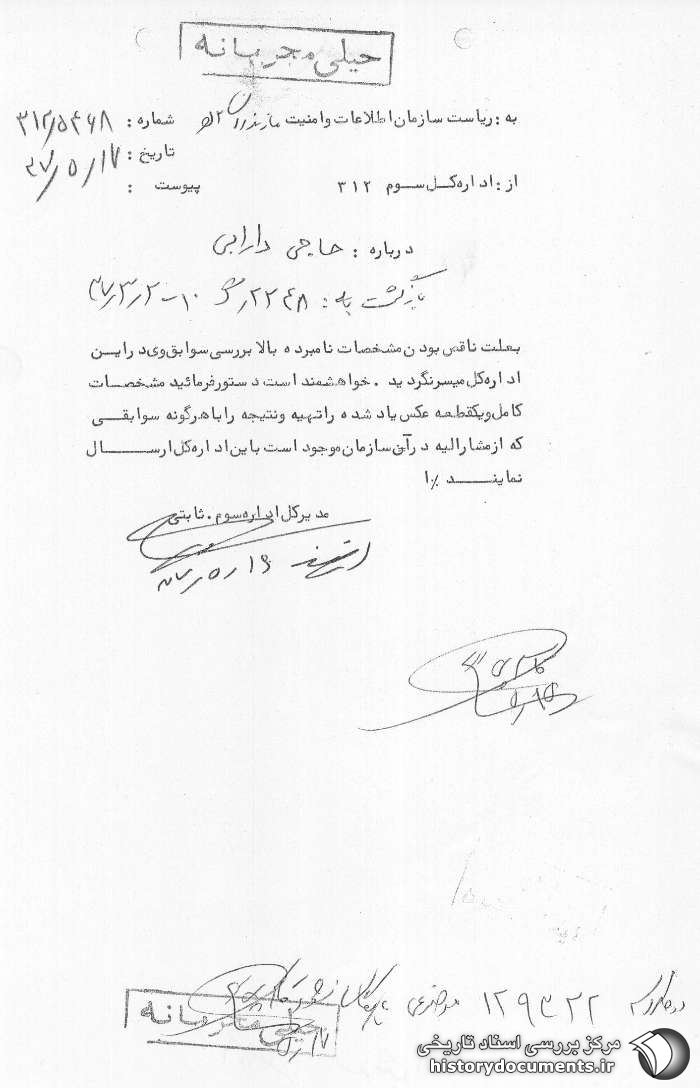 خیلی محرمانه
به : ریاست سازمان اطلاعات و امنیت مازندران
شماره : ۳۱۲/۵۴۶۸
تاریخ : ۳۷/۵/۱۷
از : اداره کل سوم ۳۱۲
پیوست :
درباره : حاجی دارابی
بازگشت به : ۲۲۴۸ ... ۱۰-۳۷/۳/۲
بعلت ناقص بودن مشخصات نامبرده بالا بررسی سوابق وی در این
اداره کل میسر نگردید . خواهشمند است دستور فرمائید مشخصات
کامل و یکقطعه عکس یاد شده را تهیه و نتیجه را با هرگونه سوابقی
که از مشارالیه در آن سازمان موجود است باین اداره کل ارســـال
نماینـــد ٪ا
مدیرکل اداره سوم . ثابتی
۱۶/۵
۱۲۹۳۲۲
خیلی محرمانه
مرکز بررسی اسناد تاریخی
historydocuments.ir